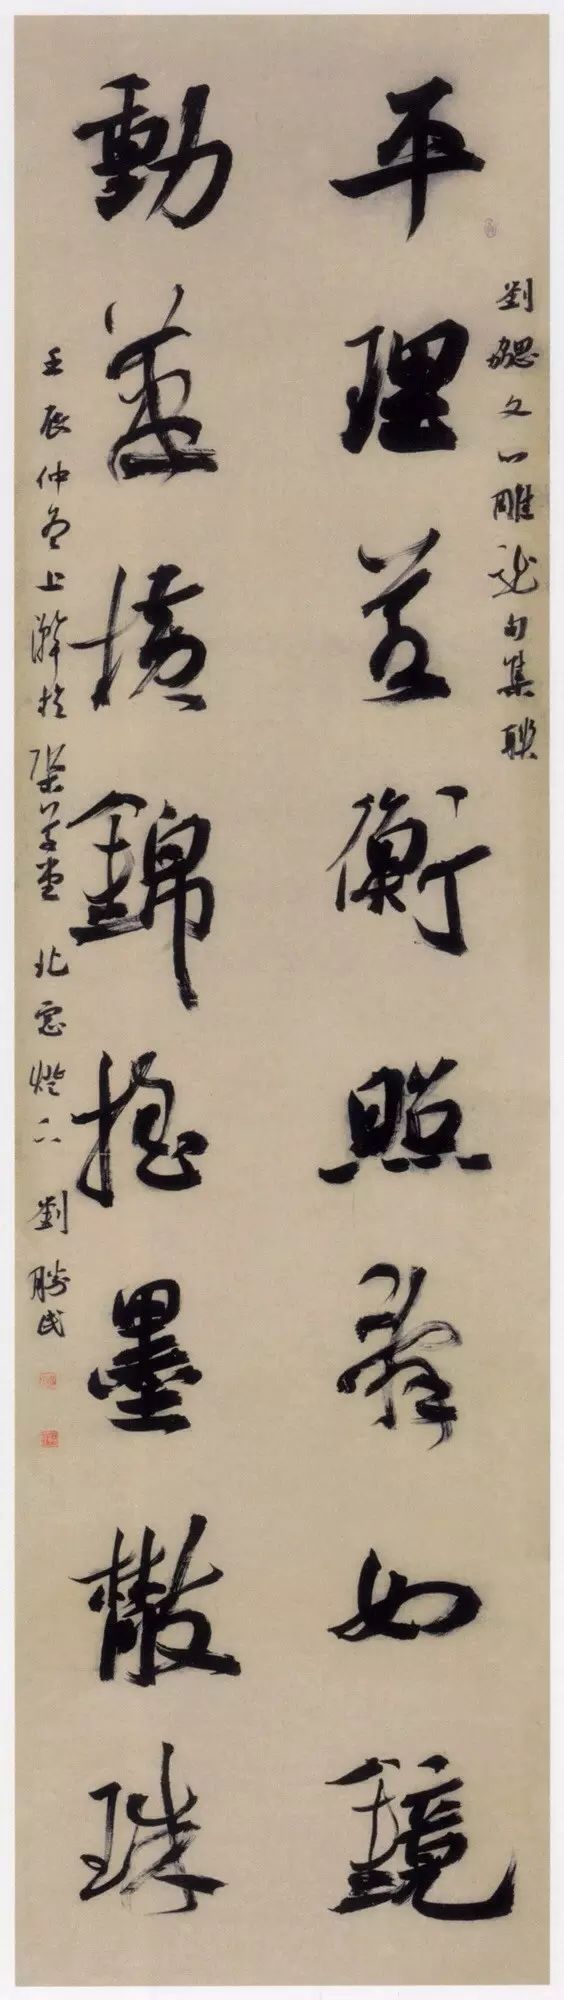 劉勰文心雕龍句集聯
平理若衡照辭如鏡
動筆橫錦搖墨散珠
壬辰仲上澣於草堂北窗燈下劉勝民